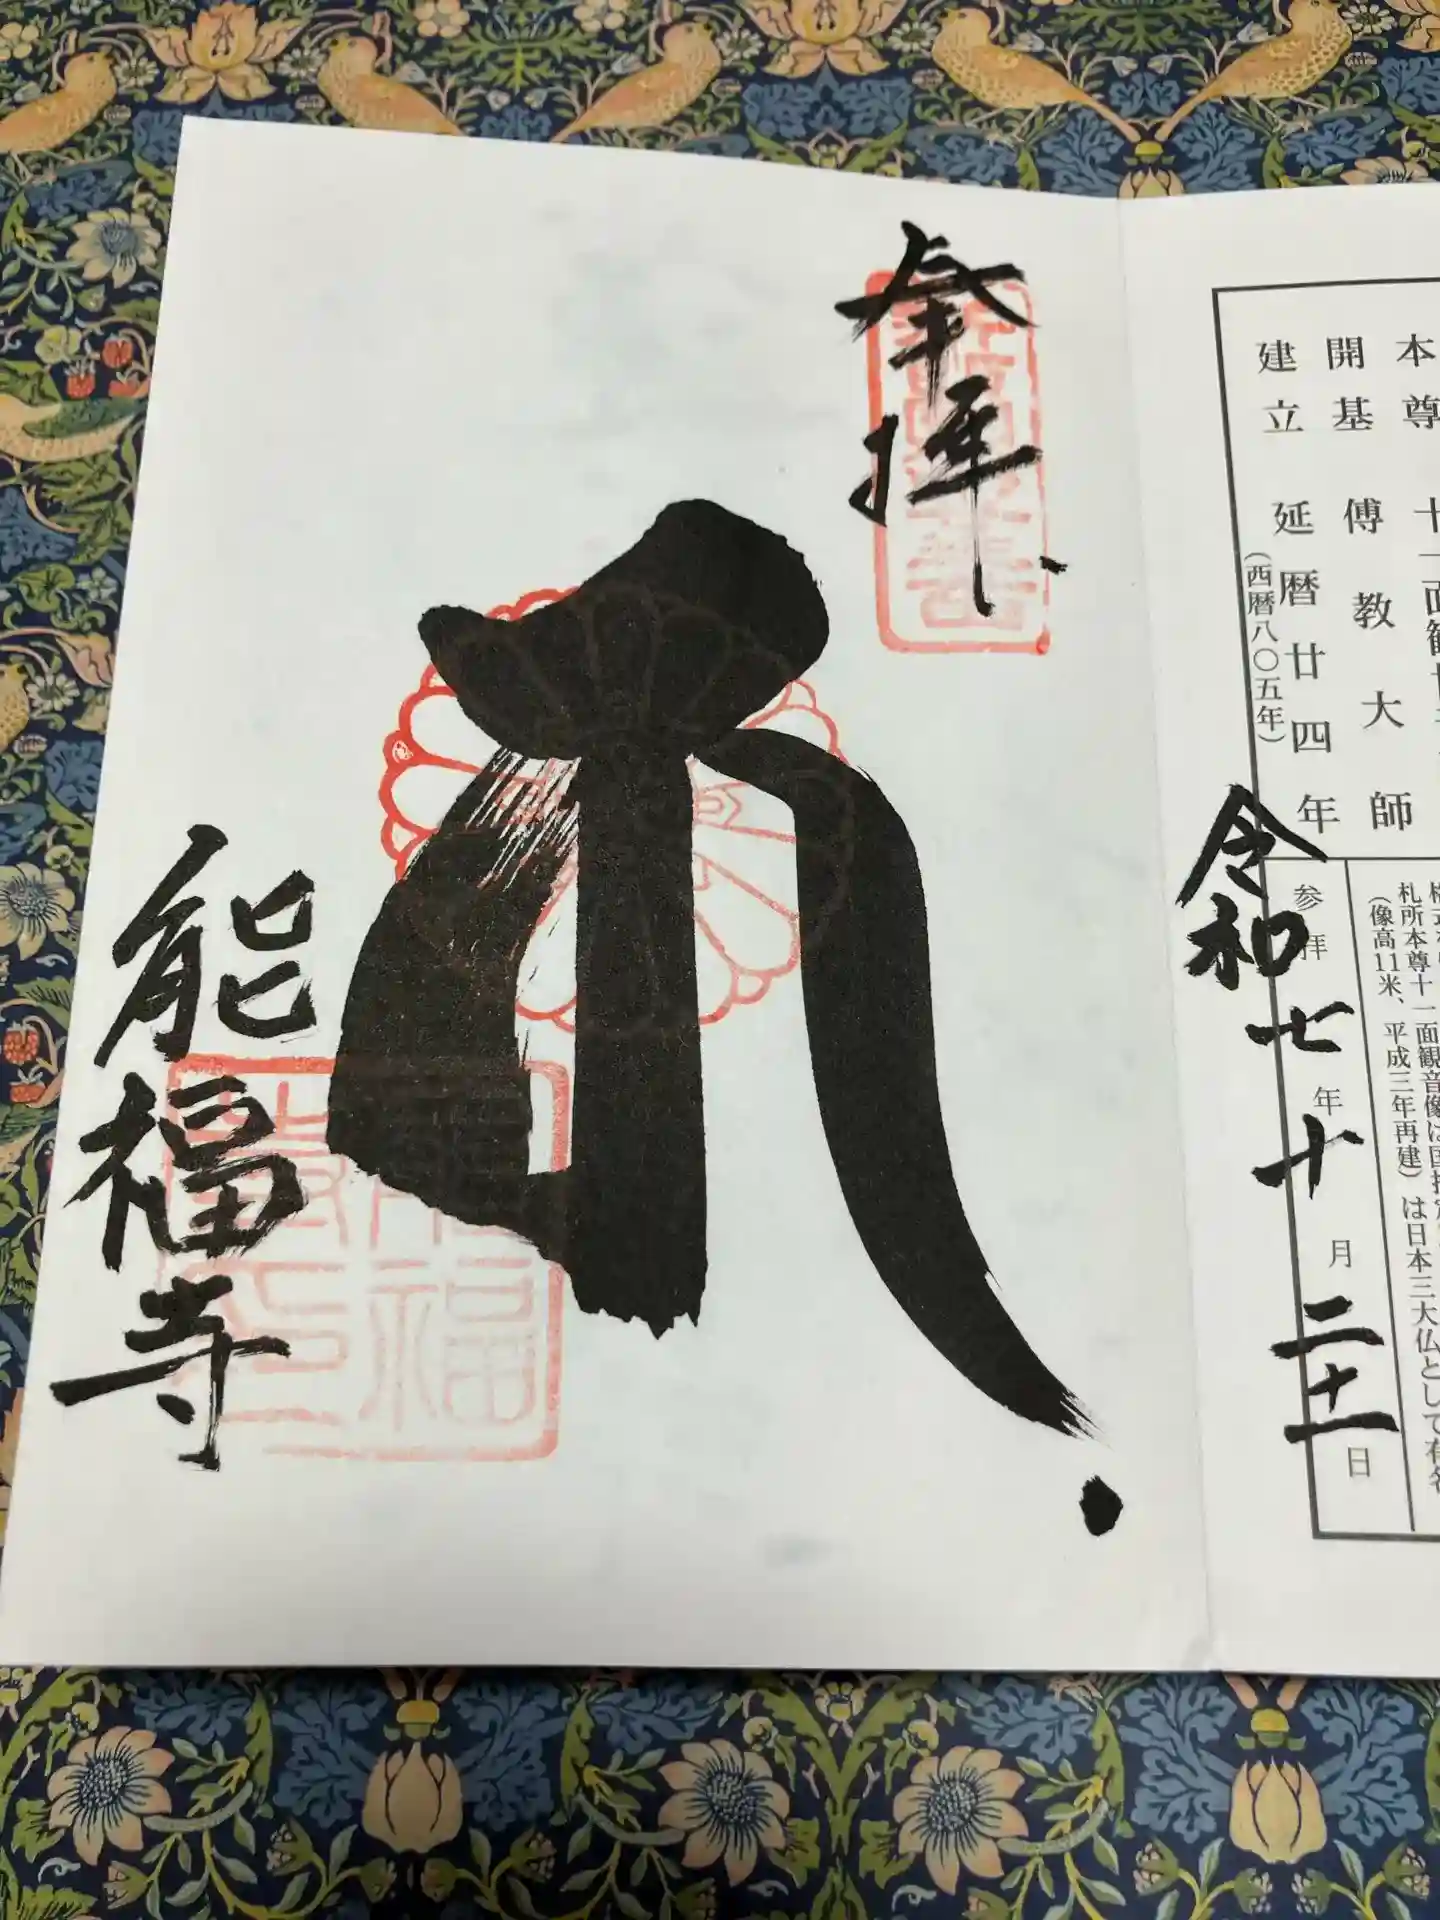 本尊 十一面観世
開基 傅教大師
建立 延暦廿四年
(西暦八〇五年)
札所本尊十一面観音像は国指定
(像高11米、平成三年再建)は日本三大仏として有名
参拝 令和七年十月二十一日
奉拝
能福寺